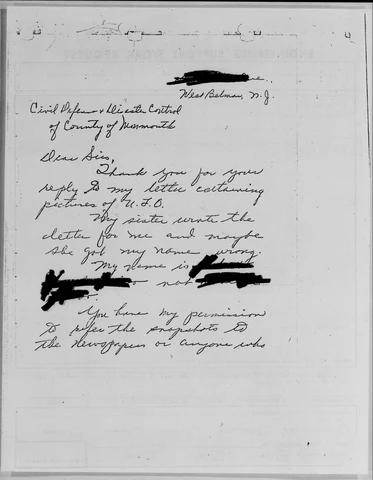 ave.
West Belmar, N.J.
Civil Defense & Disaster Control
of County of Monmouth
Dear Sirs,
Thank you for your
reply to my letter containing
pictures of U.F.O.
My sister wrote the
letter for me and maybe
she got my name wrong.
My name is
not
You have my permission
to refer the snapshots to
the newspapers or anyone who